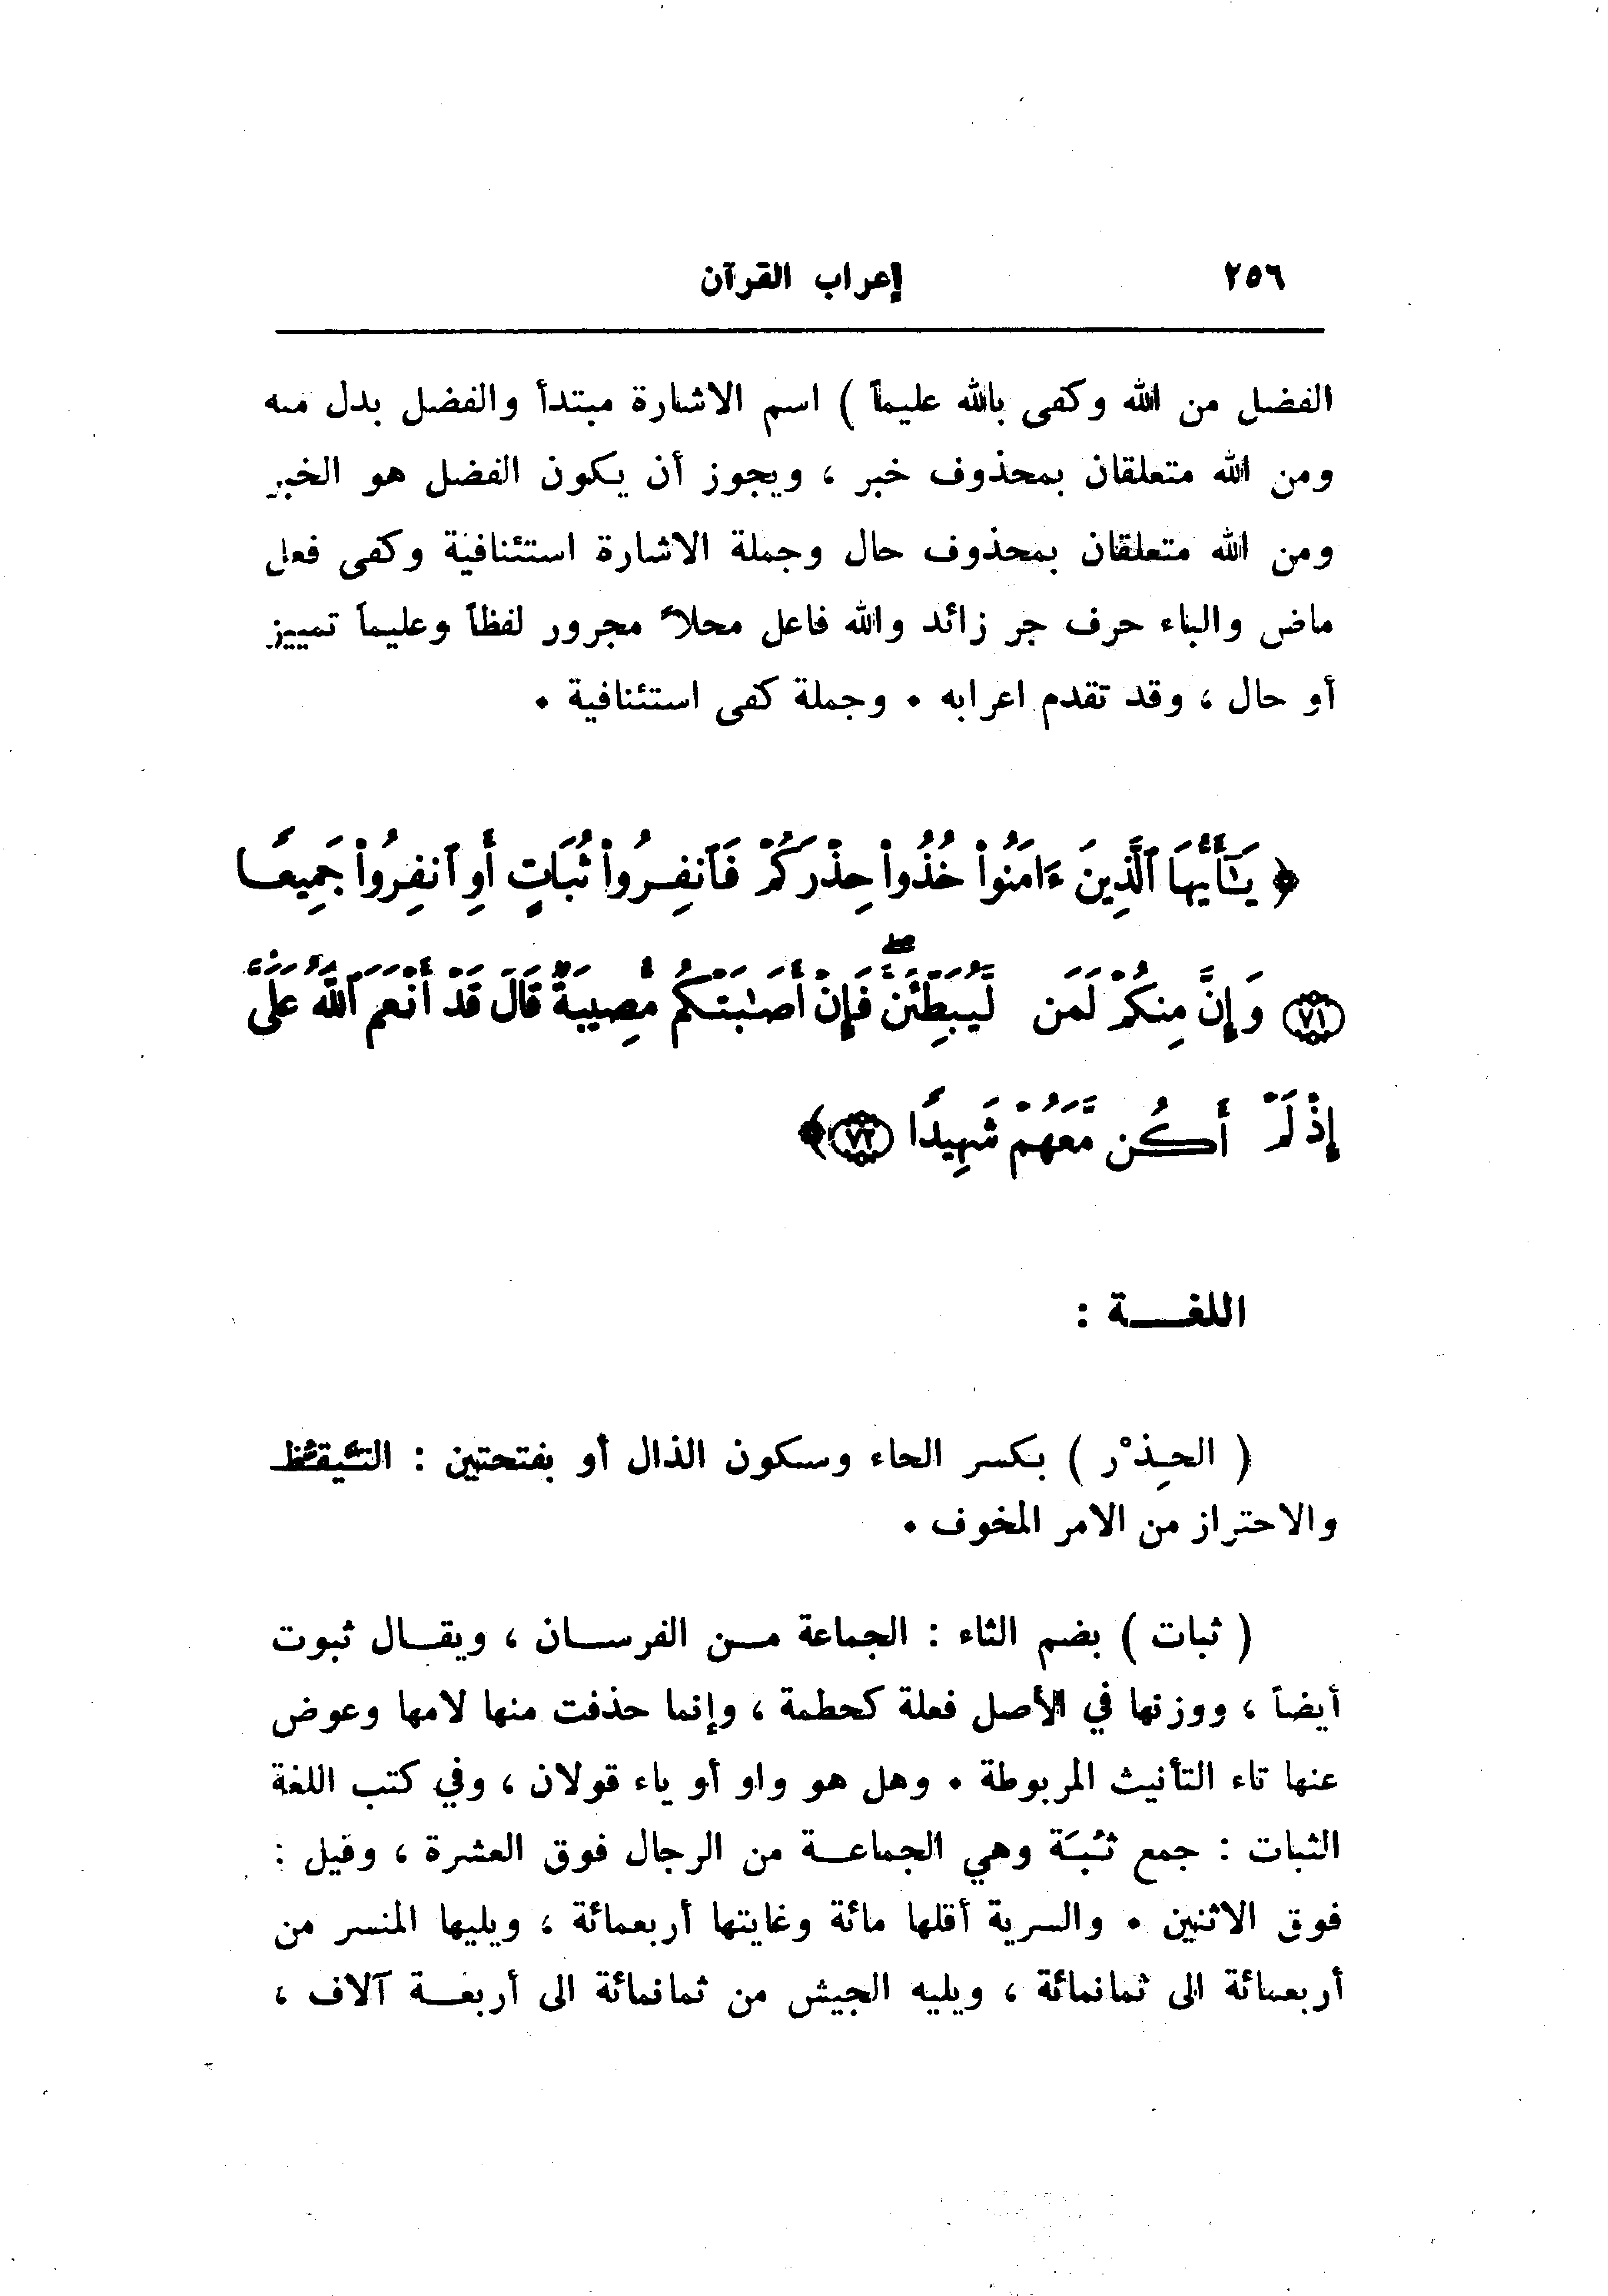 ٢٥٦ إعراب القرآن
الفضل من الله وكفى بالله عليماً ) اسم الاشارة مبتدأ والفضل بدل منه
ومن الله متعلقان بمحذوف خبر ، ويجوز أن يكون الفضل هو الخبر
ومن الله متعلقان بمحذوف حال وجملة الاشارة استئنافية وكفى فعل
ماض والباء حرف جر زائد والله فاعل محلاً مجرور لفظاً وعليماً تمييز
أو حال ، وقد تقدم اعرابه . وجملة كفى استئنافية .
﴿ يَـٰٓأَيُّهَا ٱلَّذِينَ ءَامَنُوا۟ خُذُوا۟ حِذْرَكُمْ فَٱنفِرُوا۟ ثُبَاتٍ أَوِ ٱنفِرُوا۟ جَمِيعًا
٧١ وَإِنَّ مِنكُمْ لَمَن لَّيُبَطِّئَنَّ ۖ فَإِنْ أَصَـٰبَتْكُم مُّصِيبَةٌ قَالَ قَدْ أَنْعَمَ ٱللَّهُ عَلَىَّ
إِذْ لَمْ أَكُن مَّعَهُمْ شَهِيدًا ٧٢ ﴾
اللغـــة :
( الحِذْر ) بكسر الحاء وسكون الذال أو بفتحتين : التَّيقُّظ
والاحتراز من الامر المخوف .
( ثبات ) بضم الثاء : الجماعة مـن الفرسـان ، ويقـال ثبوت
أيضاً ، ووزنها في الأصل فعلة كحطمة ، وإنما حذفت منها لامها وعوض
عنها تاء التأنيث المربوطة . وهل هو واو أو ياء قولان ، وفي كتب اللغة
الثبات : جمع ثُبَة وهي الجماعـة من الرجال فوق العشرة ، وقيل :
فوق الاثنين . والسرية أقلها مائة وغايتها أربعمائة ، ويليها المنسر من
أربعمائة الى ثمانمائة ، ويليه الجيش من ثمانمائة الى أربعـة آلاف ،